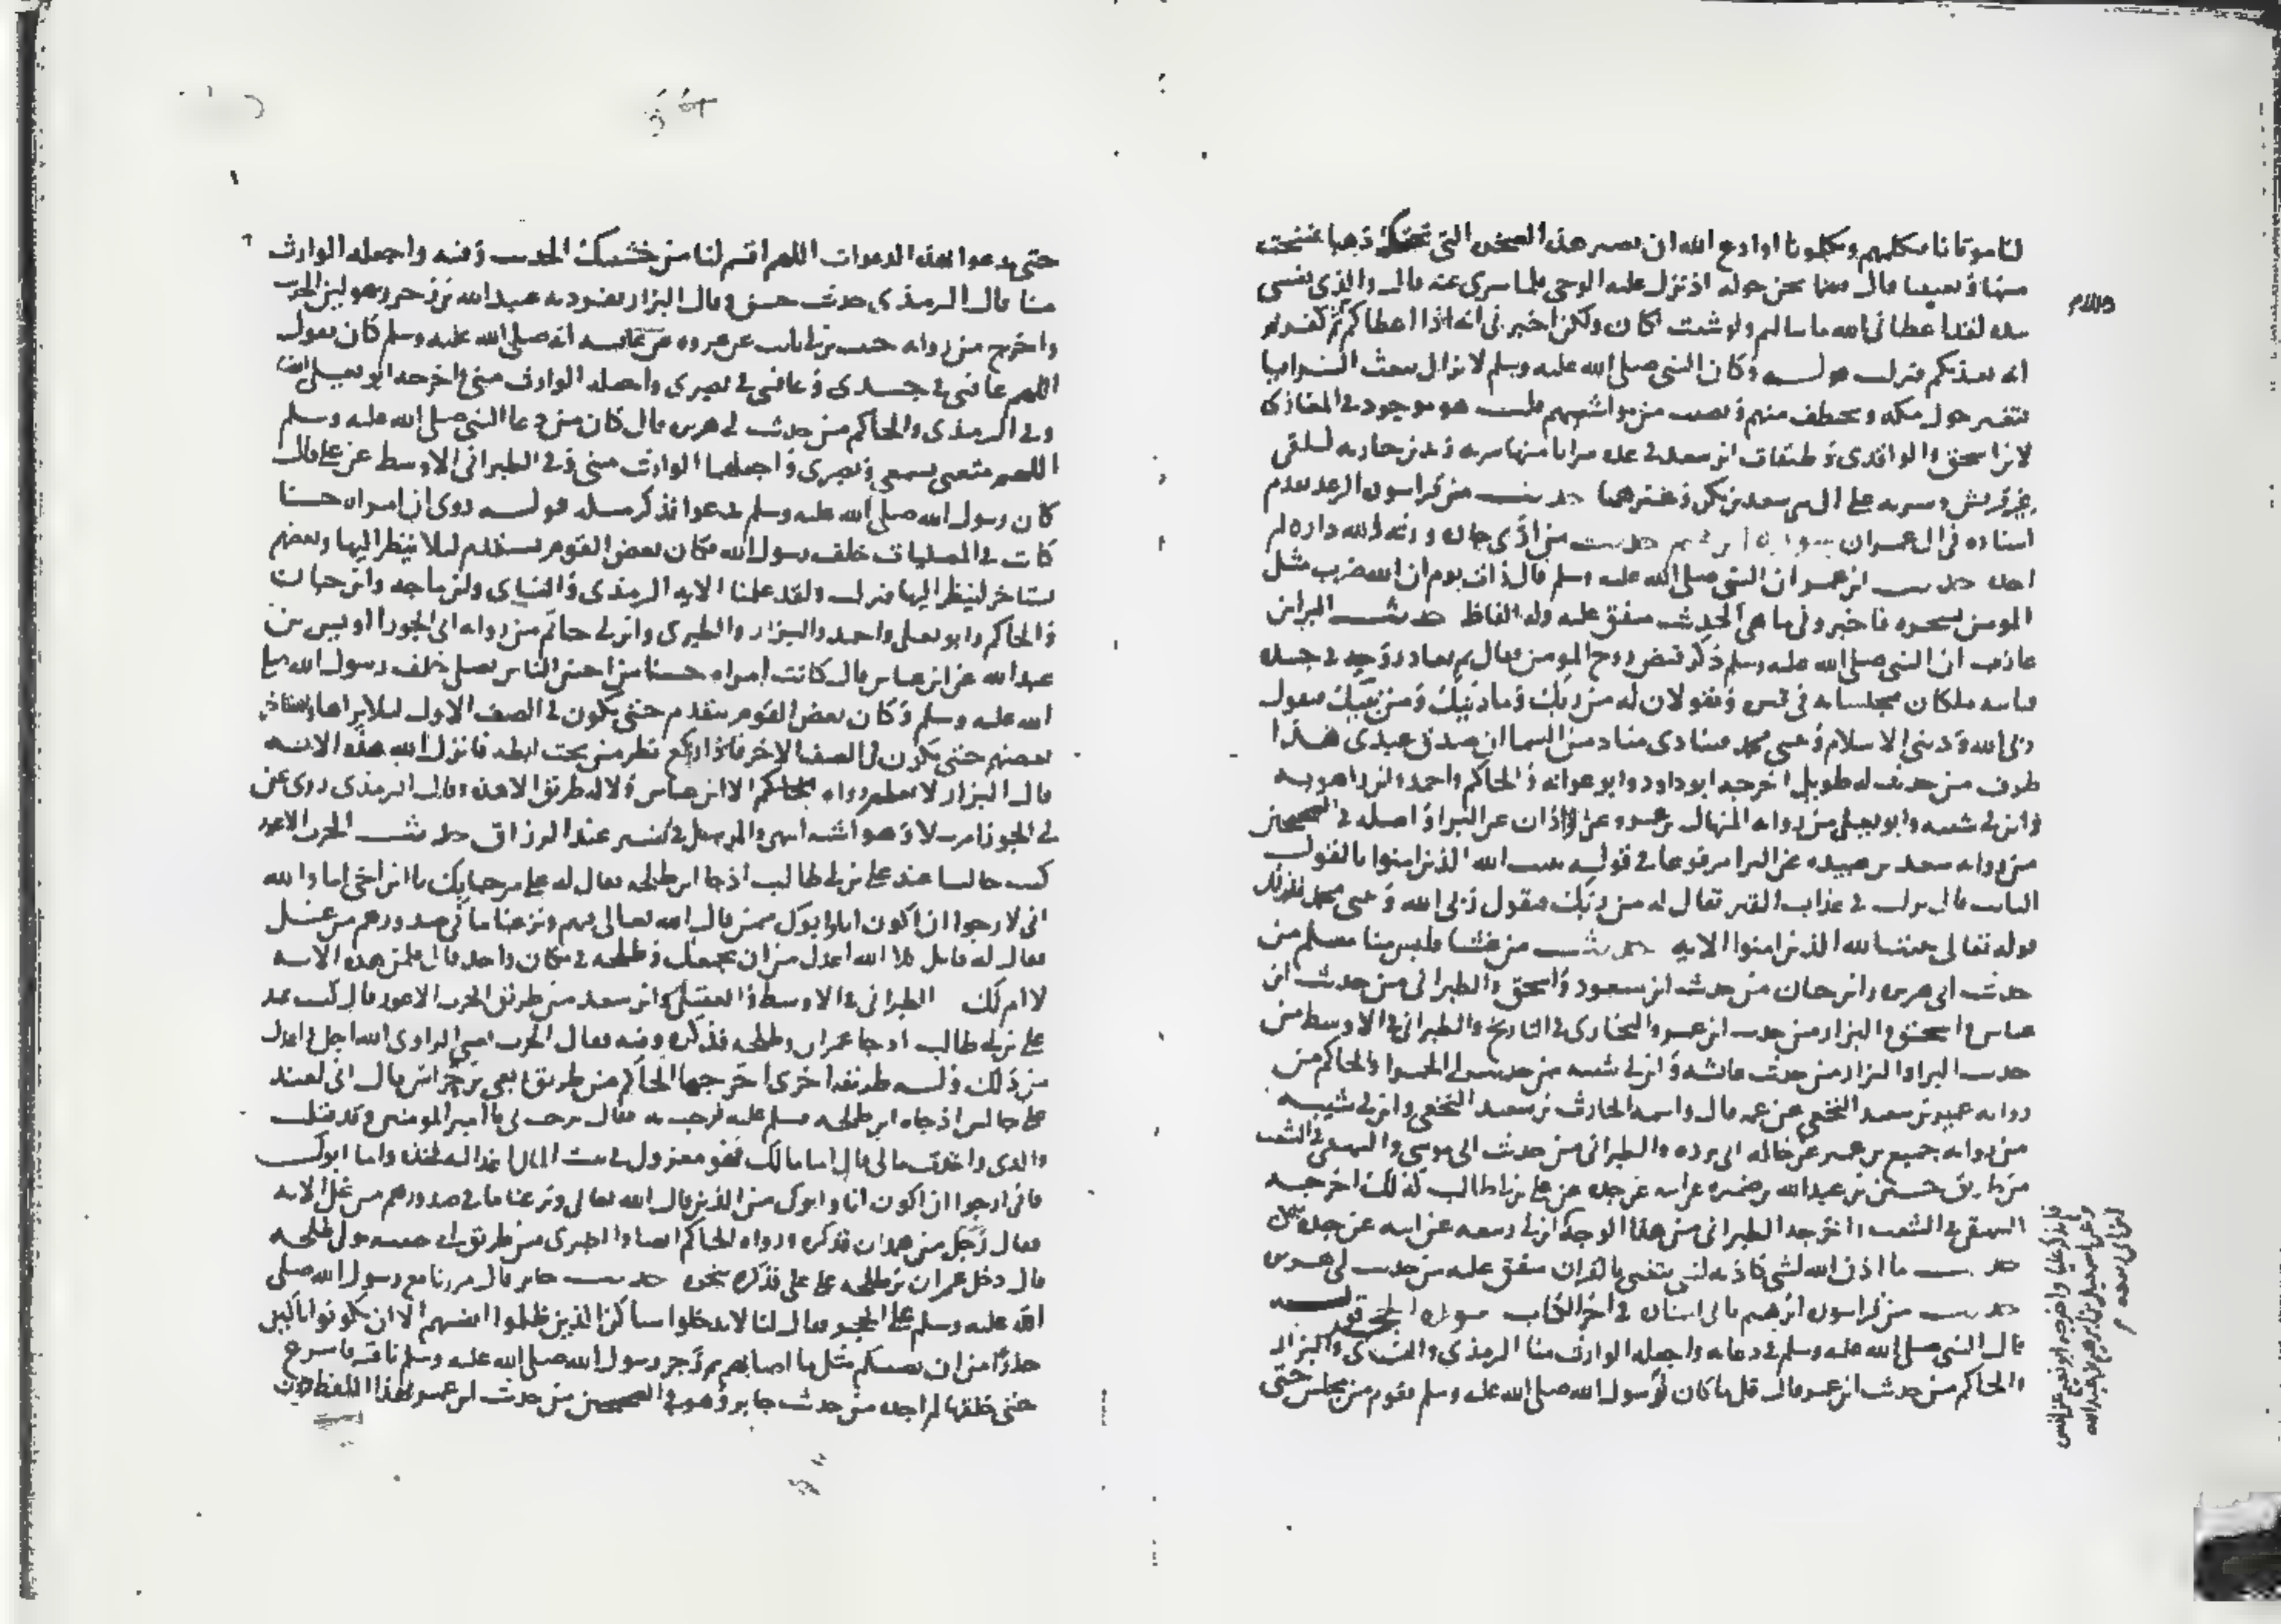 لنا موتانا نكلمهم ويكلمونا او ادع الله ان يصير هذه الصخرة التي تحتك ذهبا فننحت
منها ويغنينا قال فبينا نحن حوله اذ نزل عليه الوحي فلما سري عنه قال والذي نفسي
بيده لقد اعطاني الله ما سالتم ولو شئت لكان ولكن اخبرني انه اذا اعطاكم ثم كفرتم
انه يعذبكم فنزلت قوله وكان النبي صلى الله عليه وسلم لا يزال يبعث السرايا
فتغير حول مكة وتخطف منهم وتصيب من مواشيهم قلت هو موجود في المغازي
لابن اسحق والواقدي وطبقات ابن سعد في عدة سرايا منها سرية زيد بن حارثة لتلقي
عير قريش وسرية علي الى بني سعد بن بكر وغيرهما حديث من قرا سورة الرعد تقدم
اسناده في ال عمران حديث من اذى جاره ورثه الله داره لم
اجده حديث ابن عمر ان النبي صلى الله عليه وسلم قال ذات يوم ان الله ضرب مثل
المومن بشجرة فاخبروني ما هي الحديث متفق عليه وله الفاظ حديث البرا بن
عازب ان النبي صلى الله عليه وسلم ذكر قبض روح المومن فقال ثم يعاد روحه في جسده
فياتيه ملكان فيجلسانه في قبره ويقولان له من ربك وما دينك ومن نبيك فيقول
ربي الله وديني الاسلام ونبيي محمد فينادي مناد من السما ان صدق عبدي هذا
طرف من حديث له طويل اخرجه ابو داود وابو عوانه والحاكم واحمد وابن راهويه
وابن ابي شيبه وابو يعلى من رواية المنهال بن عمرو عن زاذان عن البرا واصله في الصحيحين
من رواية سعد بن عبيده عن البرا مرفوعا في قوله يثبت الله الذين امنوا بالقول
الثابت قال نزلت في عذاب القبر يقال له من ربك فيقول ربي الله ونبيي محمد فذلك
قوله تعالى يثبت الله الذين امنوا الاية حديث من غشنا فليس منا مسلم من
حديث ابي هريرة وابن حبان من حديث ابن مسعود واسحق والطبراني من حديث ابن
عباس واسحق والبزار من حديث ابن عمر والبخاري في التاريخ والطبراني في الاوسط من
حديث البرا والبزار من حديث عائشه وابن ابي شيبه من حديث ابي الحمرا والحاكم من
رواية عمير بن سعيد النخعي عن عمه قال واسمه الحارث بن سعيد النخعي وابن ابي شيبه
من رواية جميع بن عمير عن خاله ابي برده والطبراني من حديث ابي موسى والبيهقي في الشعب
من طريق حسين بن عبدالله بن ضميره عن ابيه عن جده عن علي بن ابي طالب كذلك اخرجه
البيهقي في الشعب واخرجه الطبراني من هذا الوجه عن ابيه عن جده
حديث ما اذن الله لشي كاذنه لنبي يتغنى بالقران متفق عليه من حديث ابي هريرة
حديث من قرا سورة ابراهيم ياتي اسناده في اخر الكتاب سورة الحجر قوله
قال النبي صلى الله عليه وسلم في دعائه واجعله الوارث منا الترمذي والنسائي والبزار
والحاكم من حديث ابن عمر قال قل ما كان رسول الله صلى الله عليه وسلم يقوم من مجلس حتى
حتى يدعوا بهذه الدعوات اللهم اقسم لنا من خشيتك الحديث وفيه واجعله الوارث
منا قال الترمذي حديث حسن وقال البزار تفرد به عبيدالله بن زحر وهو لين الحديث
واخرج من رواية حبيب بن ابي ثابت عن عروه عن عائشه انه صلى الله عليه وسلم كان يقول
اللهم عافني في جسدي وعافني في بصري واجعله الوارث مني واخرجه ابو يعلى ايضا
وفي الترمذي والحاكم من حديث ابي هريره قال كان من دعا النبي صلى الله عليه وسلم
اللهم متعني بسمعي وبصري واجعلهما الوارث مني وفي الطبراني الاوسط عن علي قال
كان رسول الله صلى الله عليه وسلم يدعوا فذكر مثله قوله روى ان امراة حسنا
كانت في المصليات خلف رسول الله فكان بعض القوم يستقدم ليلا ينظر اليها وبعضهم
يستاخر لينظر اليها فنزلت ولقد علمنا الاية الترمذي والنسائي وابن ماجه وابن حبان
والحاكم وابو يعلى واحمد والبزار والطبري وابن ابي حاتم من رواية ابي الجوزا اوس بن
عبدالله عن ابن عباس قال كانت امراه حسنا من احسن الناس تصلي خلف رسول الله صلى
الله عليه وسلم وكان بعض القوم يتقدم حتى يكون في الصف الاول ليلا يراها ويستاخر
بعضهم حتى يكون في الصف الاخر فاذا ركع نظر من تحت ابطه فانزل الله هذه الاية
قال البزار لا نعلم رواه الا ابن عباس ولا له طريق الا هذه وقال الترمذي روى عن
ابي الجوزا مرسلا وهو اشبه انتهى والمرسل في تفسير عبد الرزاق حديث الحرث الاعور
كنت جالسا عند علي بن ابي طالب اذ جا ابن طلحه فقال له علي مرحبا بك يا ابن اخي اما والله
اني لارجوا ان اكون انا وابوك ممن قال الله تعالى فيهم ونزعنا ما في صدورهم من غل
فقال له قائل كلا الله اعدل من ان يجمعك وطلحه في مكان واحد قال فلمن هذه الاية
لا ام لك الطبراني في الاوسط والعقيلي وابن سعد من طريق الحرث الاعور قال كنت عند
علي بن ابي طالب اذ جا عمران بن طلحه فذكره وفيه فقال الحرث الراوي الله اجل واعدل
من ذلك وله طريقة اخرى اخرجها الحاكم من طريق ربعي بن حراش قال اني لعند
علي جالس اذ جاه ابن طلحه فسلم عليه فرحب به فقال ترحب بي يا امير المومنين وقد قتلت
والدي واخذت مالي قال اما مالك فهو معزول في بيت المال اغد اليه فخذه واما ابوك
فاني ارجوا ان اكون انا وابوك من الذين قال الله تعالى ونزعنا ما في صدورهم من غل الاية
فقال رجل من همدان فذكره ورواه الحاكم ايضا والطبري من طريق ابي حبيبه مولى طلحه
قال دخل عمران بن طلحه على علي فذكره بنحوه حديث جابر قال مررنا مع رسول الله صلى
الله عليه وسلم على الحجر فقال لنا لا تدخلوا مساكن الذين ظلموا انفسهم الا ان تكونوا باكين
حذرا من ان يصيبكم مثل ما اصابهم ثم زجر رسول الله صلى الله عليه وسلم ناقته فاسرع
حتى خلفها لم اجده من حديث جابر وهو في الصحيحين من حديث ابن عمر بهذا اللفظ